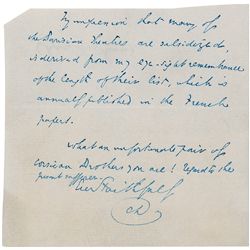 My impression that many of
the Parisian Theatres are subsidized,
is derived from my eye-sight remembrance
of the length of their list, which is
annually published in the French
papers.
What an unfortunate pair of
Corsican Brothers you are! I
the present sufferer.
Ever Faithfully
CD